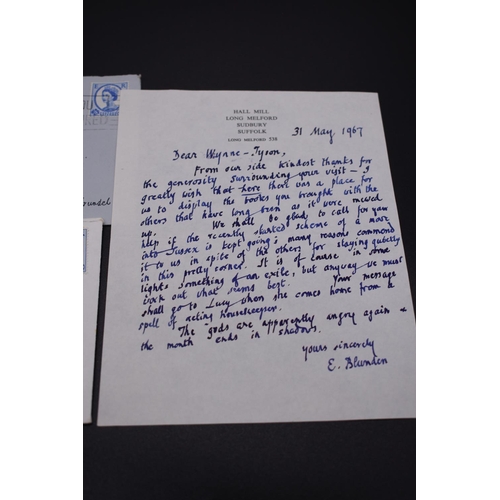 HALL MILL
LONG MELFORD
SUDBURY
SUFFOLK
LONG MELFORD 338
31 May 1967
Dear Wynne-Tyson,
From our side kindest thanks for
the generosity surrounding your visit – I
greatly wish that here there was a place for
us to display the books you brought with the
others that have long been as it were mewed
up. We shall be glad to call for your
help if the recently started scheme of a move
into Sussex is kept going; many reasons commend
it to us in spite of the others for staying quietly
in this pretty corner. It is of course in some
lights something of an exile, but anyway we must
work out what seems best. Your message
shall go to Lucy when she comes home from a
spell of acting housekeeper.
The gods are apparently angry again &
the month ends in shadows.
Yours sincerely
E. Blunden
rundel